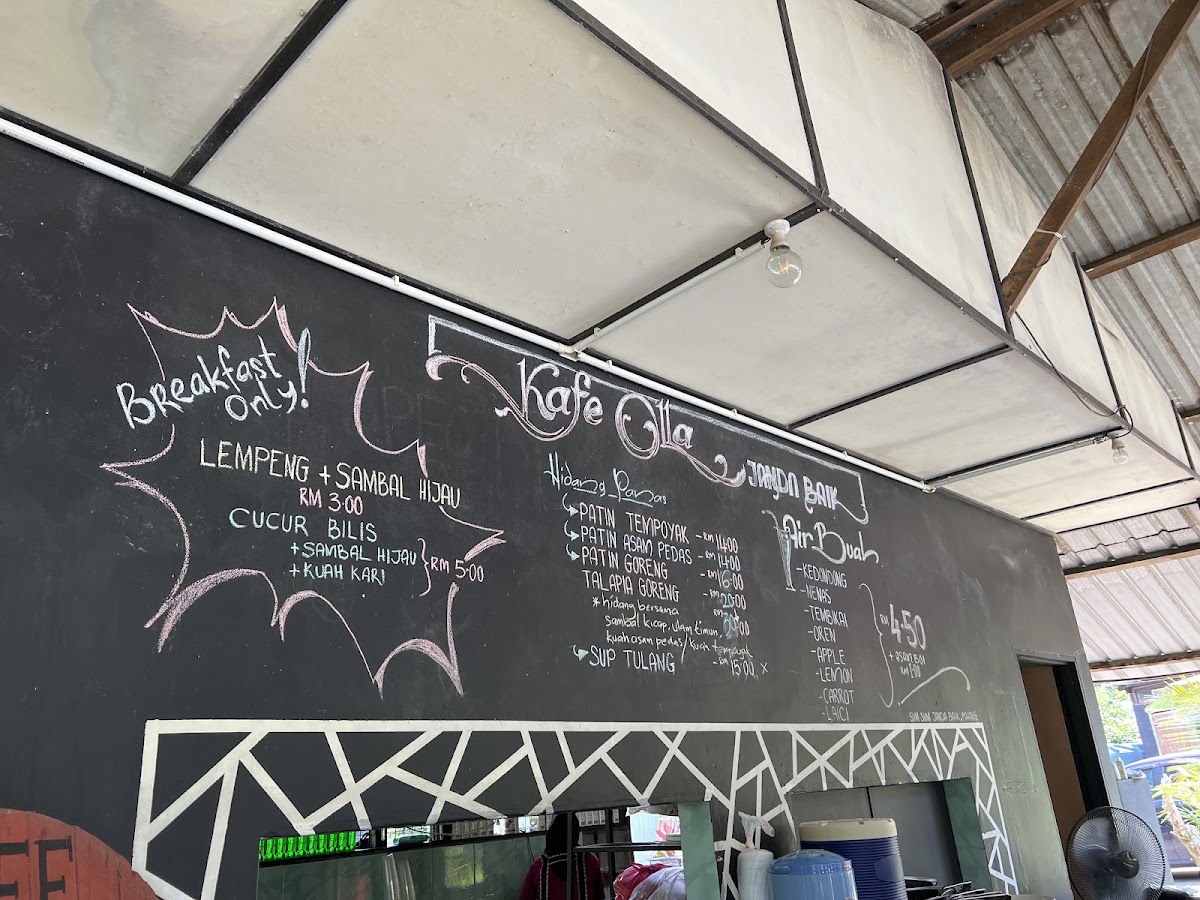 Breakfast
Only!
LEMPENG + SAMBAL HIJAU
RM 3.00
CUCUR BILIS
+ SAMBAL HIJAU
+ KUAH KARI
} RM 5.00
Kafe Olla
JANDA BAIK
Hidang Panas
PATIN TEMPOYAK - RM 14.00
PATIN ASAM PEDAS - RM 14.00
PATIN GORENG - RM 16.00
TALAPIA GORENG - RM 20.00
* hidang bersama
sambal kicap, ulam timun,
kuah asam pedas / kuah tempoyak
SUP TULANG - RM 15.00 x
Air Buah
- KEDONDONG
- NENAS
- TEMBIKAI
- OREN
- APPLE
- LEMON
- CARROT
- LAICI
RM 4.50
+ asam BOI
RM 1.00
SUM SUM JANDA BAIK, PAHANG